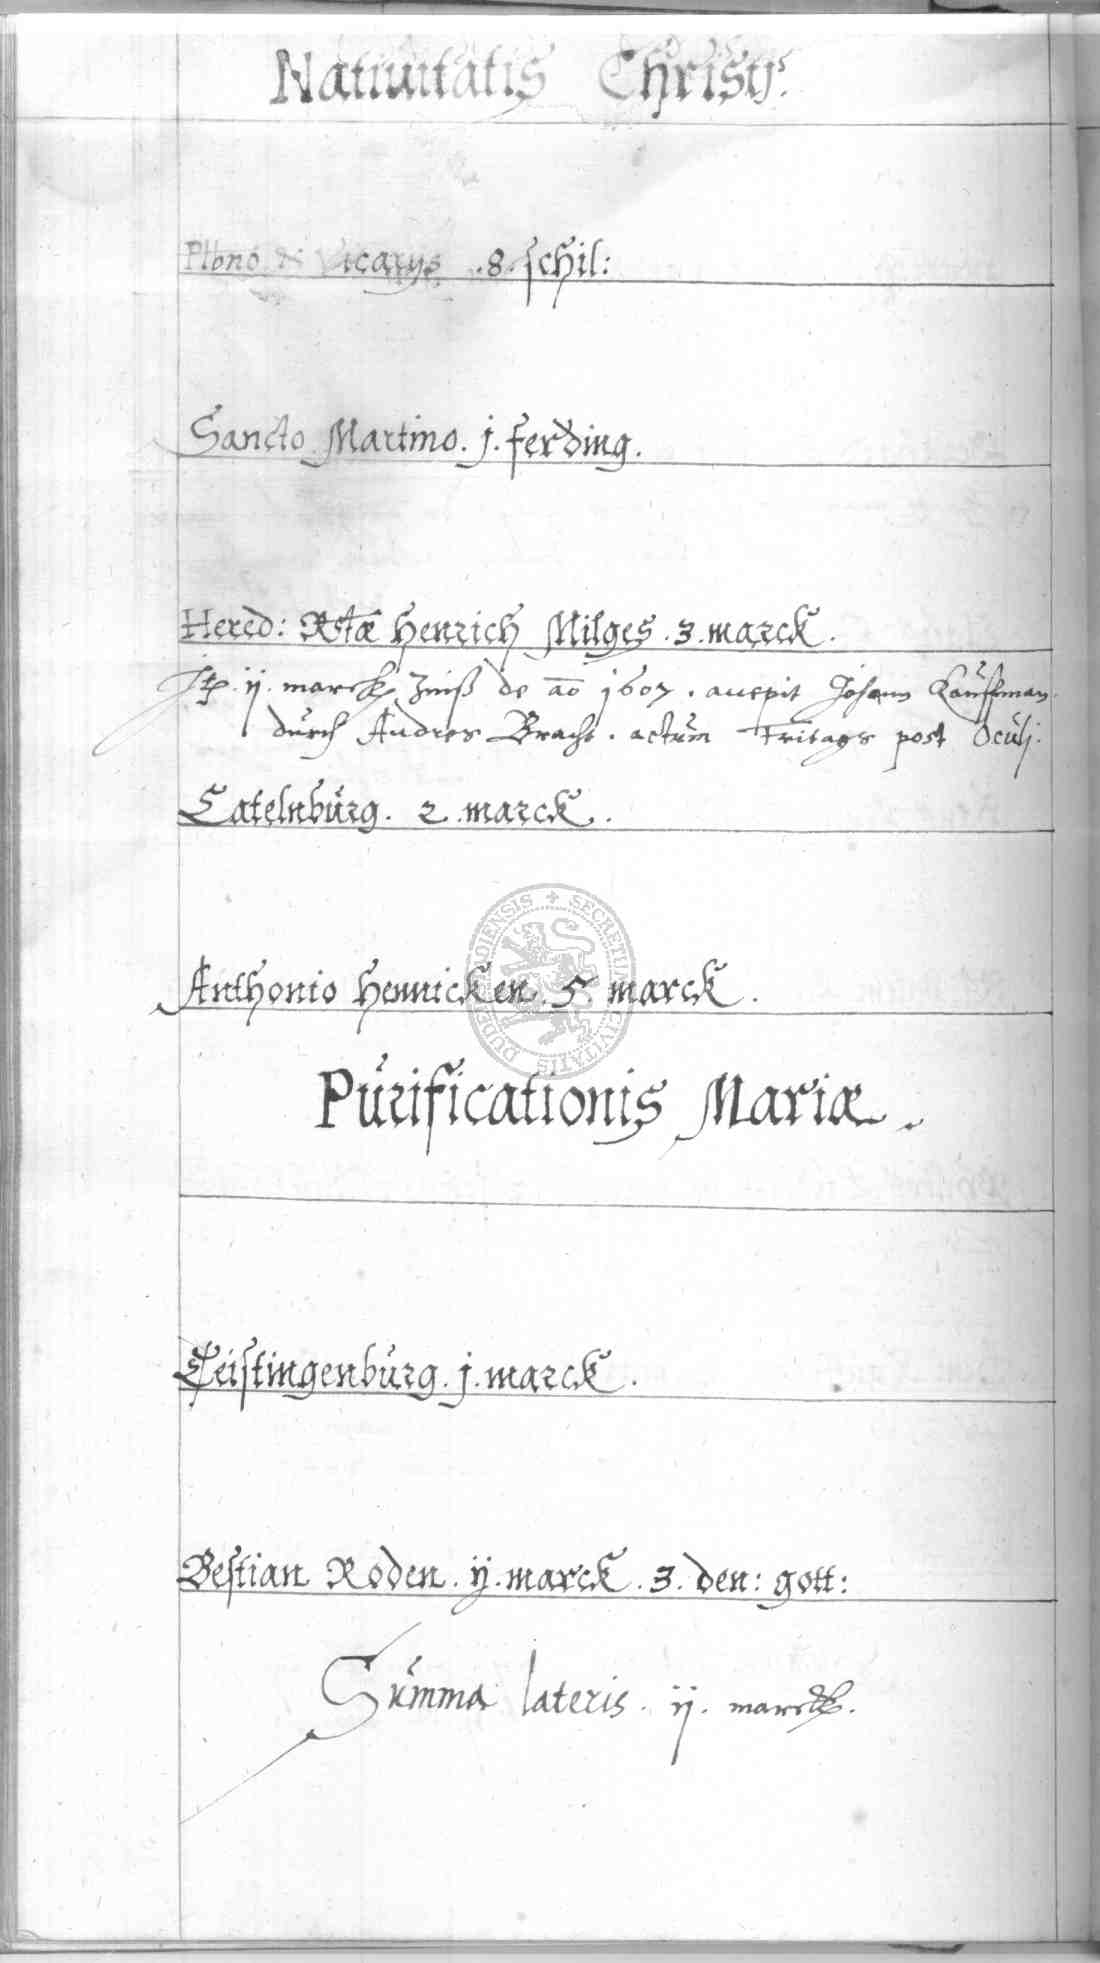 Natiuitatis Christi.
Plbno & Vicarys .8. schil:
Sancto Martino. j. ferding.
Hered: Rotæ Henrich Milges .3. marck.
Jtp. ij. marck Zinß de ao 1607. accepit Johann Kauffman
durch Andres Bracht. actum Fritags post Oculj.
Catelnburg. 2. marck.
Anthonio Hennicken. 5. marck.
SECRETUM CIVITATIS DUDERSTADIENSIS
Purificationis Mariæ.
Leistingenburg. j. marck.
Bestian Roden. ij. marck. 3. den: gott:
Summa lateris. ij. marck.